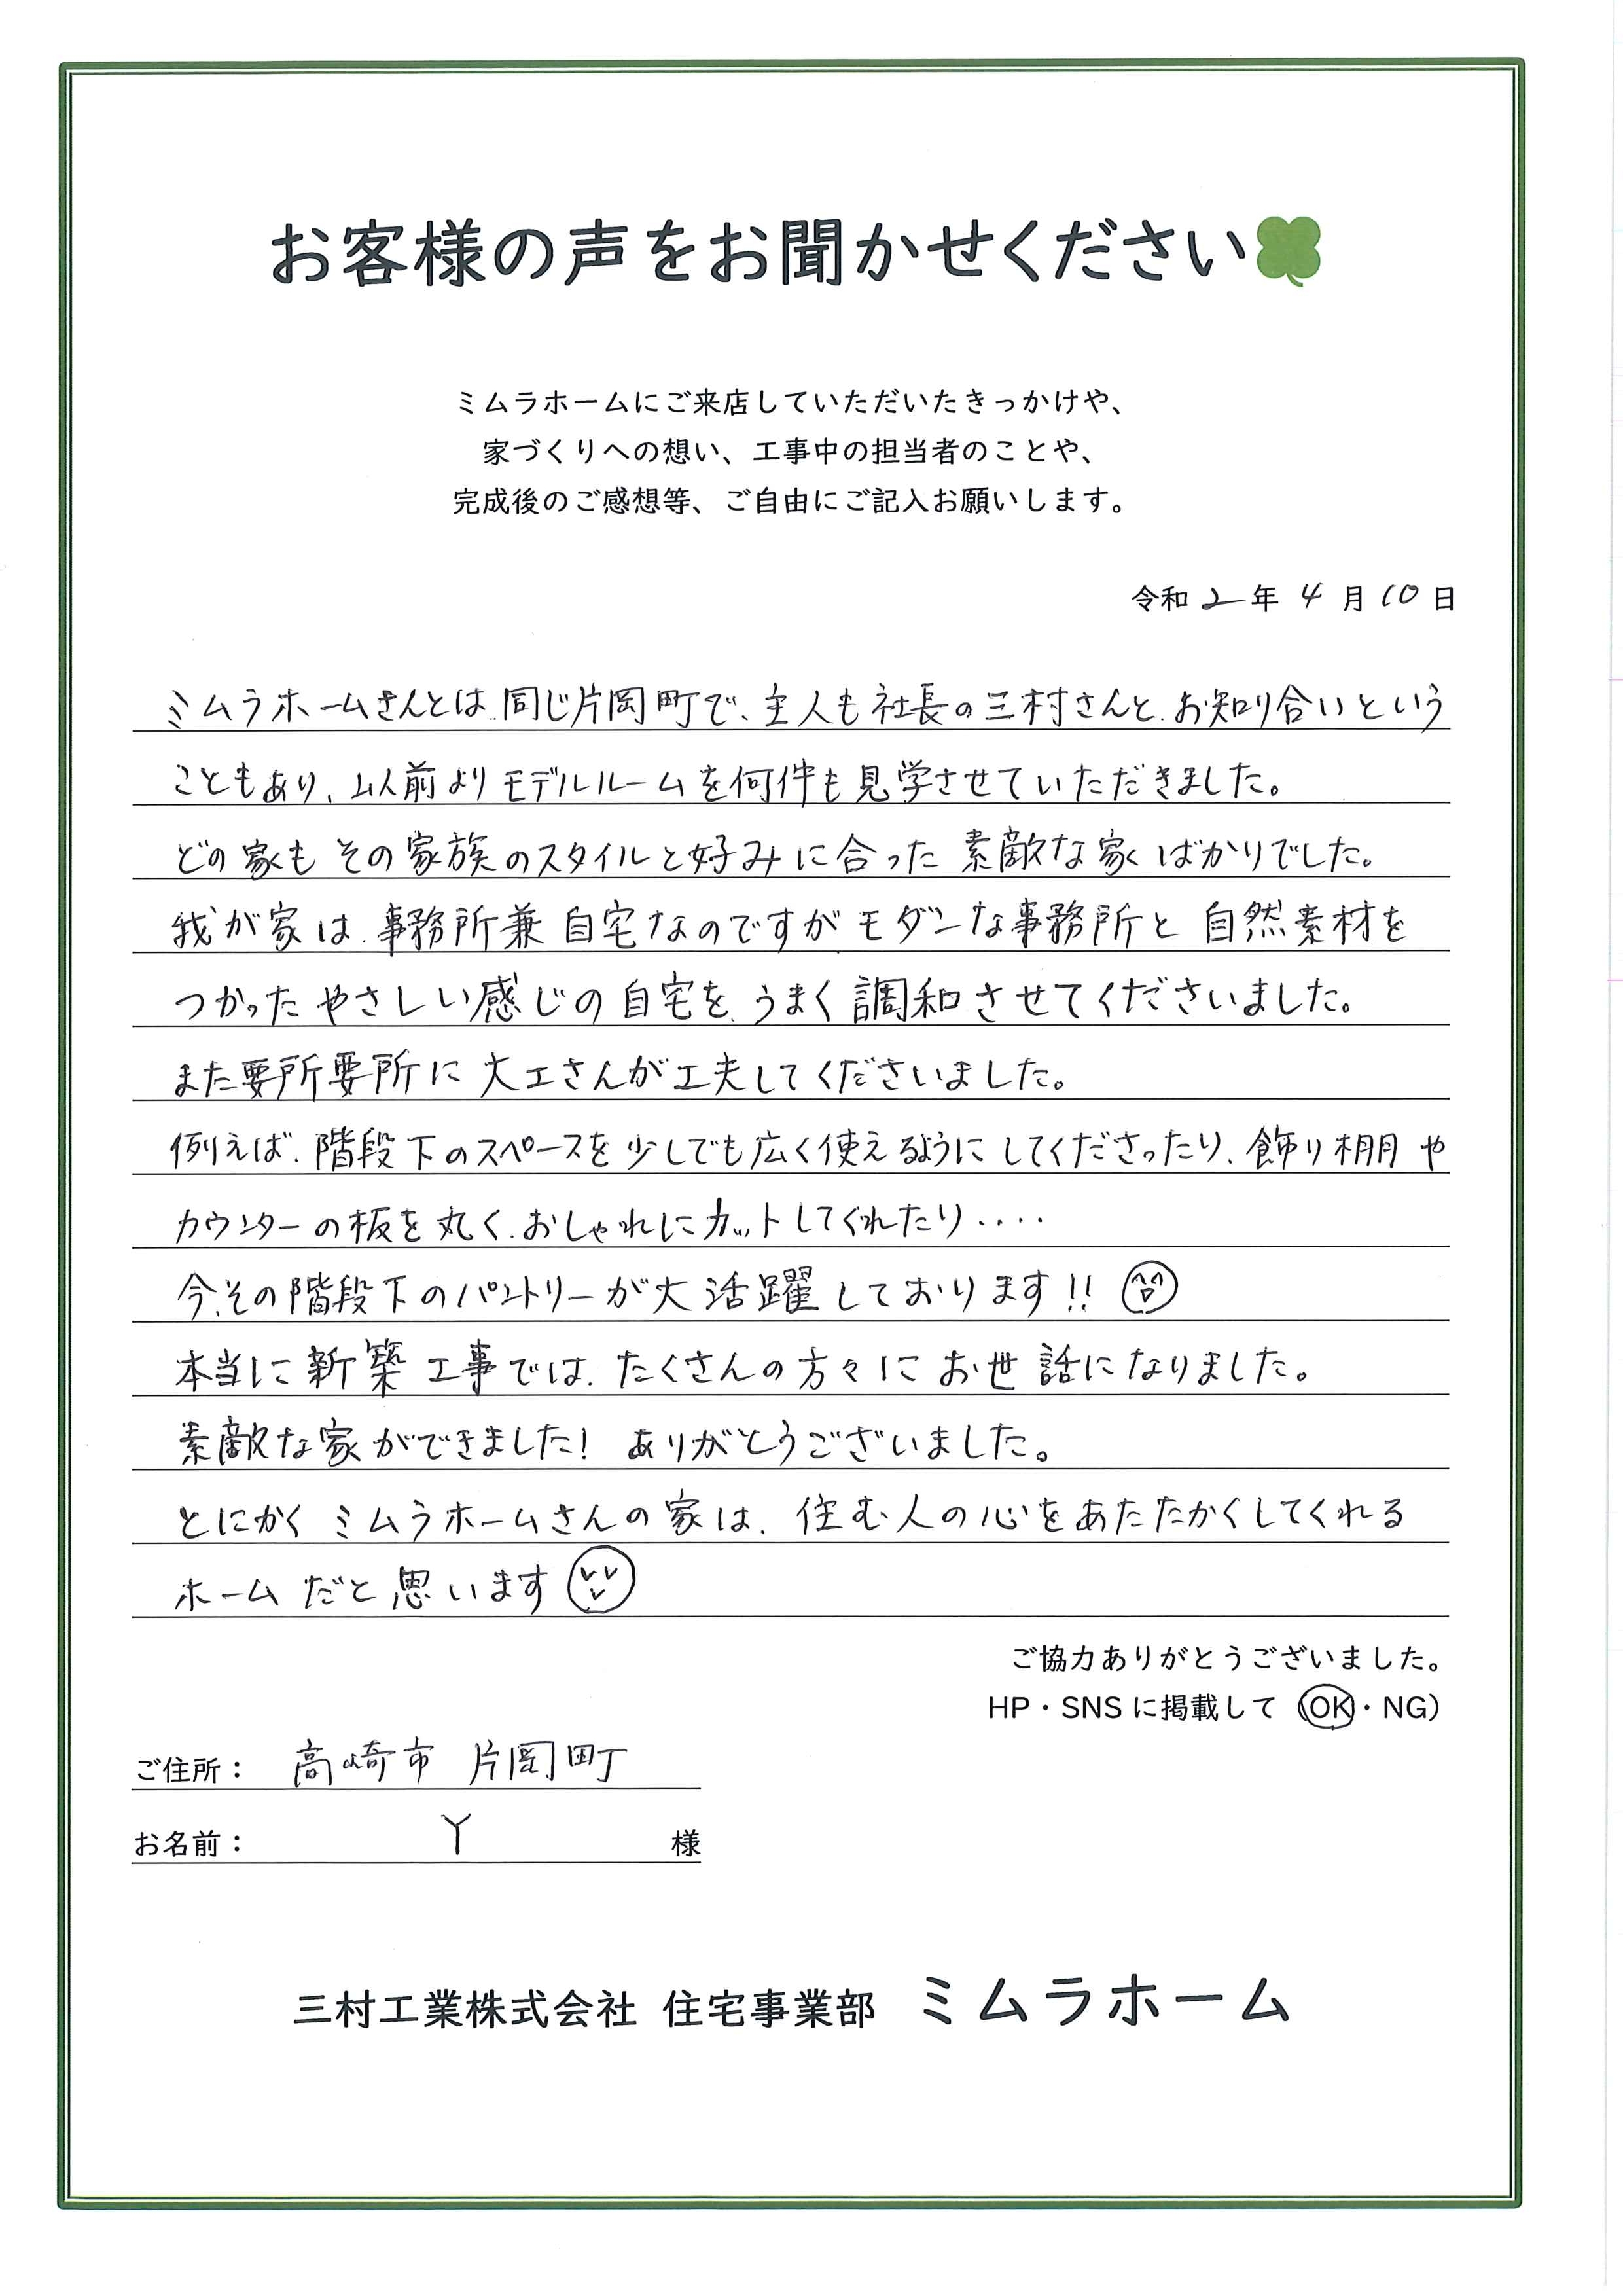 お客様の声をお聞かせください
ミムラホームにご来店していただいたきっかけや、
家づくりへの想い、工事中の担当者のことや、
完成後のご感想等、ご自由にご記入お願いします。
令和 2 年 4 月 10 日
ミムラホームさんとは、同じ片岡町で、主人も社長の三村さんと、お知り合いという
こともあり、以前よりモデルルームを何件も見学させていただきました。
どの家もその家族のスタイルと好みに合った素敵な家ばかりでした。
我が家は、事務所兼自宅なのですがモダンな事務所と自然素材を
つかったやさしい感じの自宅を、うまく調和させてくださいました。
また要所要所に大工さんが工夫してくださいました。
例えば、階段下のスペースを少しでも広く使えるようにしてくださったり、飾り棚や
カウンターの板を丸く、おしゃれにカットしてくれたり‥‥
今、その階段下のパントリーが大活躍しております!!
本当に新築工事では、たくさんの方々にお世話になりました。
素敵な家ができました! ありがとうございました。
とにかくミムラホームさんの家は、住む人の心をあたたかくしてくれる
ホームだと思います
ご協力ありがとうございました。
HP・SNSに掲載して（OK・NG）
ご住所： 高崎市 片岡町
お名前： Y 様
三村工業株式会社 住宅事業部 ミムラホーム